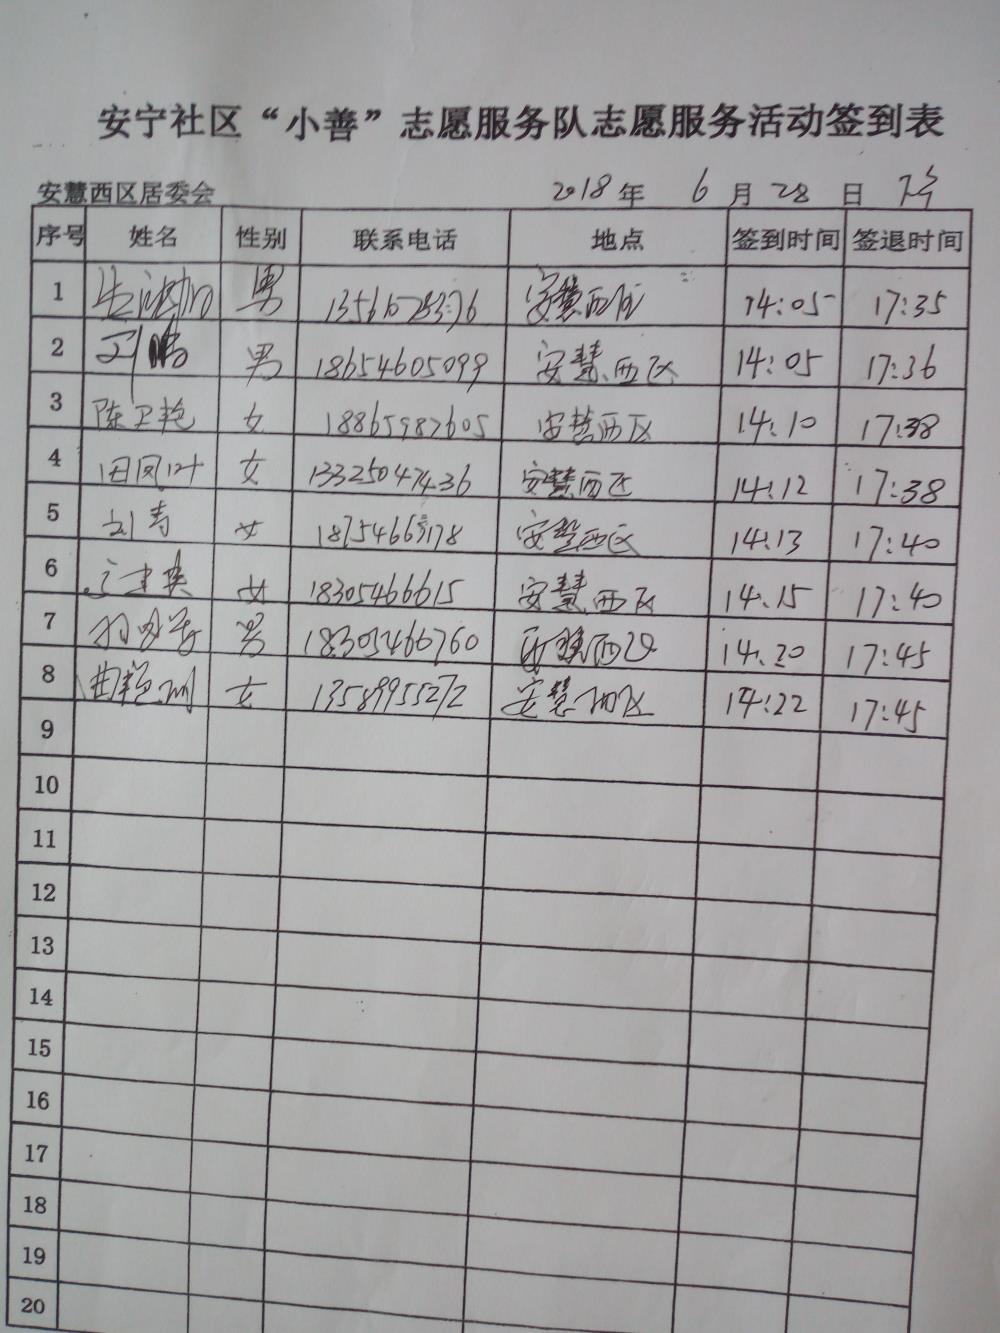 安宁社区“小善”志愿服务队志愿服务活动签到表
安慧西区居委会 2018年 6月28日
序号 姓名 性别 联系电话 地点 签到时间 签退时间
1 男 安慧西区 14:05 17:35
2 男 18654605099 安慧西区 14:05 17:36
3 陈卫艳 女 18865987605 安慧西区 14:10 17:38
4 田凤叶 女 13325047436 安慧西区 14:12 17:38
5 刘寿 女 安慧西区 14:13 17:40
6 女 18305466615 安慧西区 14:15 17:40
7 男 18305466760 西区 14:20 17:45
8 曲艳丽 女 13589955272 安慧西区 14:22 17:45
9
10
11
12
13
14
15
16
17
18
19
20